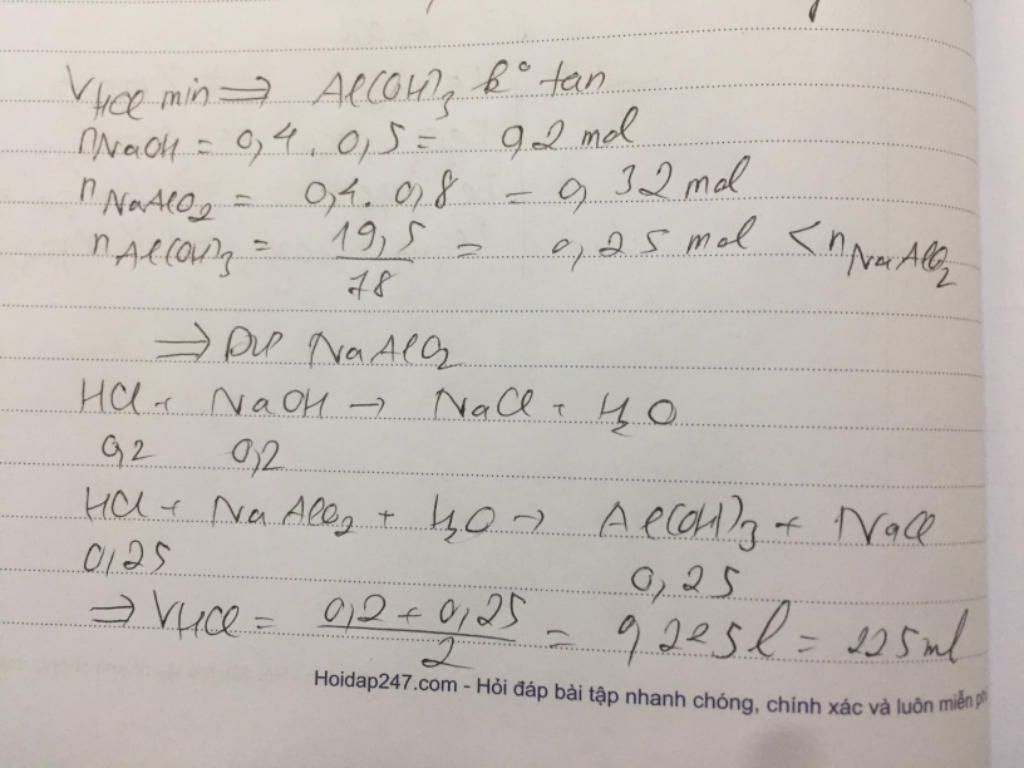 V HCl min => Al(OH)3 k° tan
nNaOH = 0,4 . 0,5 = 0,2 mol
nNaAlO2 = 0,4 . 0,8 = 0,32 mol
nAl(OH)3 = 19,5/78 = 0,25 mol < nNaAlO2
=> Dư NaAlO2
HCl + NaOH → NaCl + H2O
0,2 0,2
HCl + NaAlO2 + H2O → Al(OH)3 + NaCl
0,25 0,25
=> VHCl = (0,2 + 0,25)/2 = 0,225l = 225ml
Hoidap247.com - Hỏi đáp bài tập nhanh chóng, chính xác và luôn miễn ph